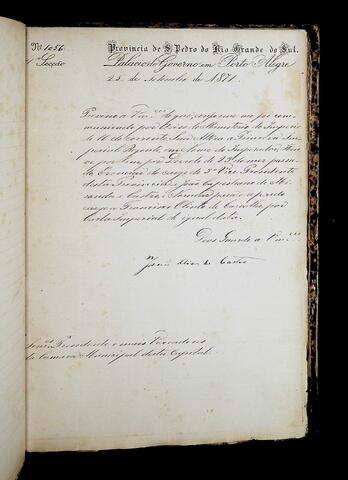 Nº 1056
1ª Secção
Provincia de S. Pedro do Rio Grande do Sul.
Palacio do Governo em Porto Alegre
22 de Setembro de 1871.
Previno a Vm.ces de que, conforme me foi com-
municado por Aviso do Ministerio do Imperio
de do corrente, Sua Alteza a Princeza Im-
perial Regente, em Nome do Imperador, Hou-
ve por bem por Decreto de 23 do mez passa-
do Exonerar do cargo de 3º Vice Presidente
desta Provincia a João Capistrano de Mi-
randa e Castro, e Nomear para o referido
cargo a Francisco de Carvalho, por
Carta Imperial de igual data.
Deus Guarde a Vm.ces
de Castro
Snr.es Presidente e mais Vereadores
da Camara Municipal desta Capital.